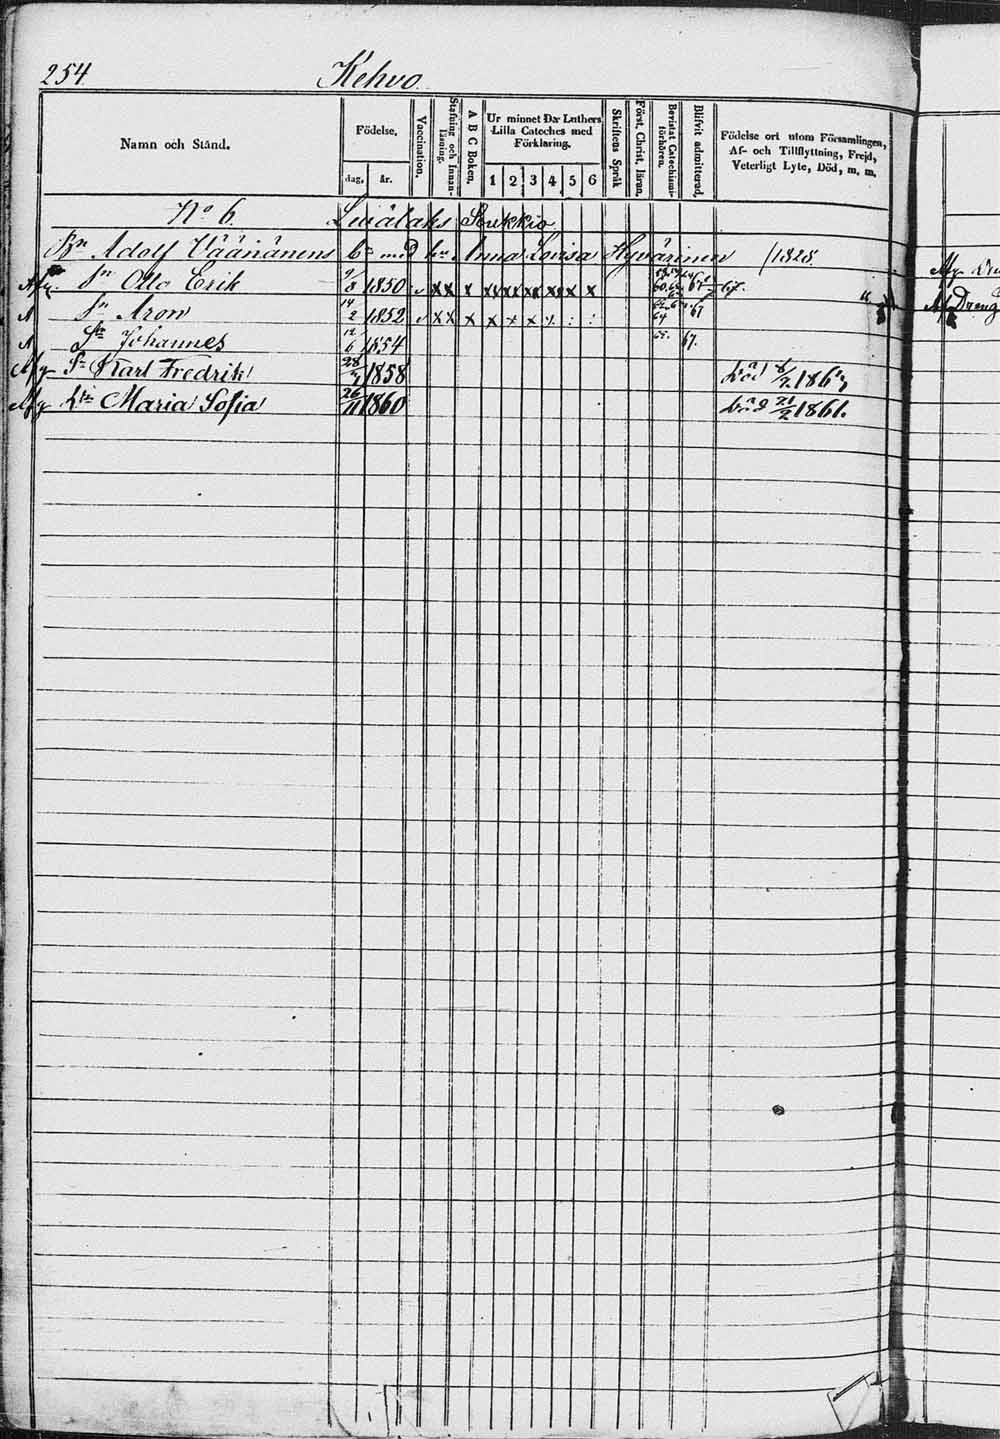 254 Kehvo.
Namn och Stånd.
Födelse.
dag. år.
Vaccination.
Stafning och Innan-läsning.
A B C Boken.
Ur minnet D:r Luthers Lilla Cateches med Förklaring.
1 2 3 4 5 6
Skriftens Språk
Först. Christ. läran.
Bevistat Catechismi-förhören.
Blifvit admitterad.
Födelse ort utom Församlingen, Af- och Tillflyttning, Frejd, Veterligt Lyte, Död, m. m.
No 6.
Bn Adolf Väänänens bn med hu Anna Lovisa Hyvärinen /1828.
Sn Otto Erik 9/8 1850 x x x x x x x x x 67.
Sn Aron 14/2 1852 x x x x x x x : : 64 67
Sn Johannes 12/6 1854 67.
Sn Karl Fredrik 1858
Dtr Maria Sofia 26/11 1860 död 21/2 1861.
Dreng